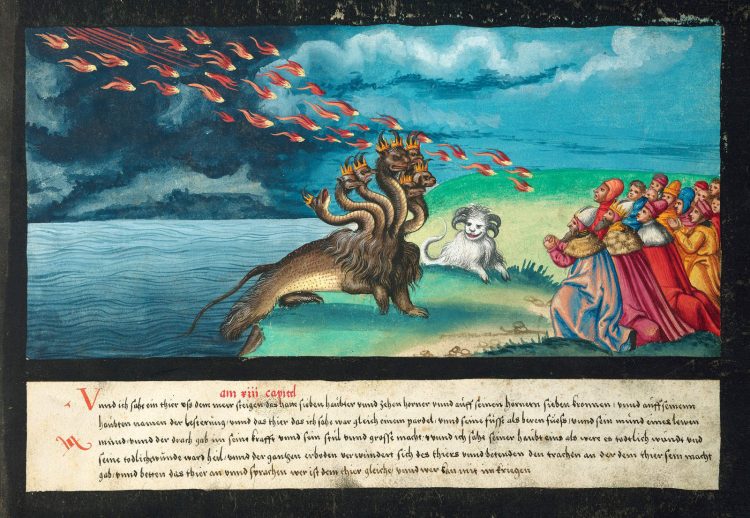 am xiii capitel
Vnnd ich sahe ein thier vsß dem meer steigen das hatt siben haübter vnnd zehen horner vnnd auff seinen hornern siben kronnen ; vnnd auff seinenn
haübten namen der lesterüng ; vnnd das thier das ich sahe war gleich einem pardel ; vnnd seine füsse als beren füess ; vnnd sein münd eines lewen
münd ; vnnd der drach gab im seine krafft vnnd sein stül vnnd grosse macht ; vnnd ich sahe seiner haübt eins als were es todtlich wünde vnd
seine todlich wünde ward heil ; vnnd der gantzen erboden verwundert sich des thiers vnnd betenden den trachen an der dem thier sein macht
gab ; vnnd betten das thier an vnnd sprachen wer ist dem thier gleiche ; vnnd wer kan mit im kriegen